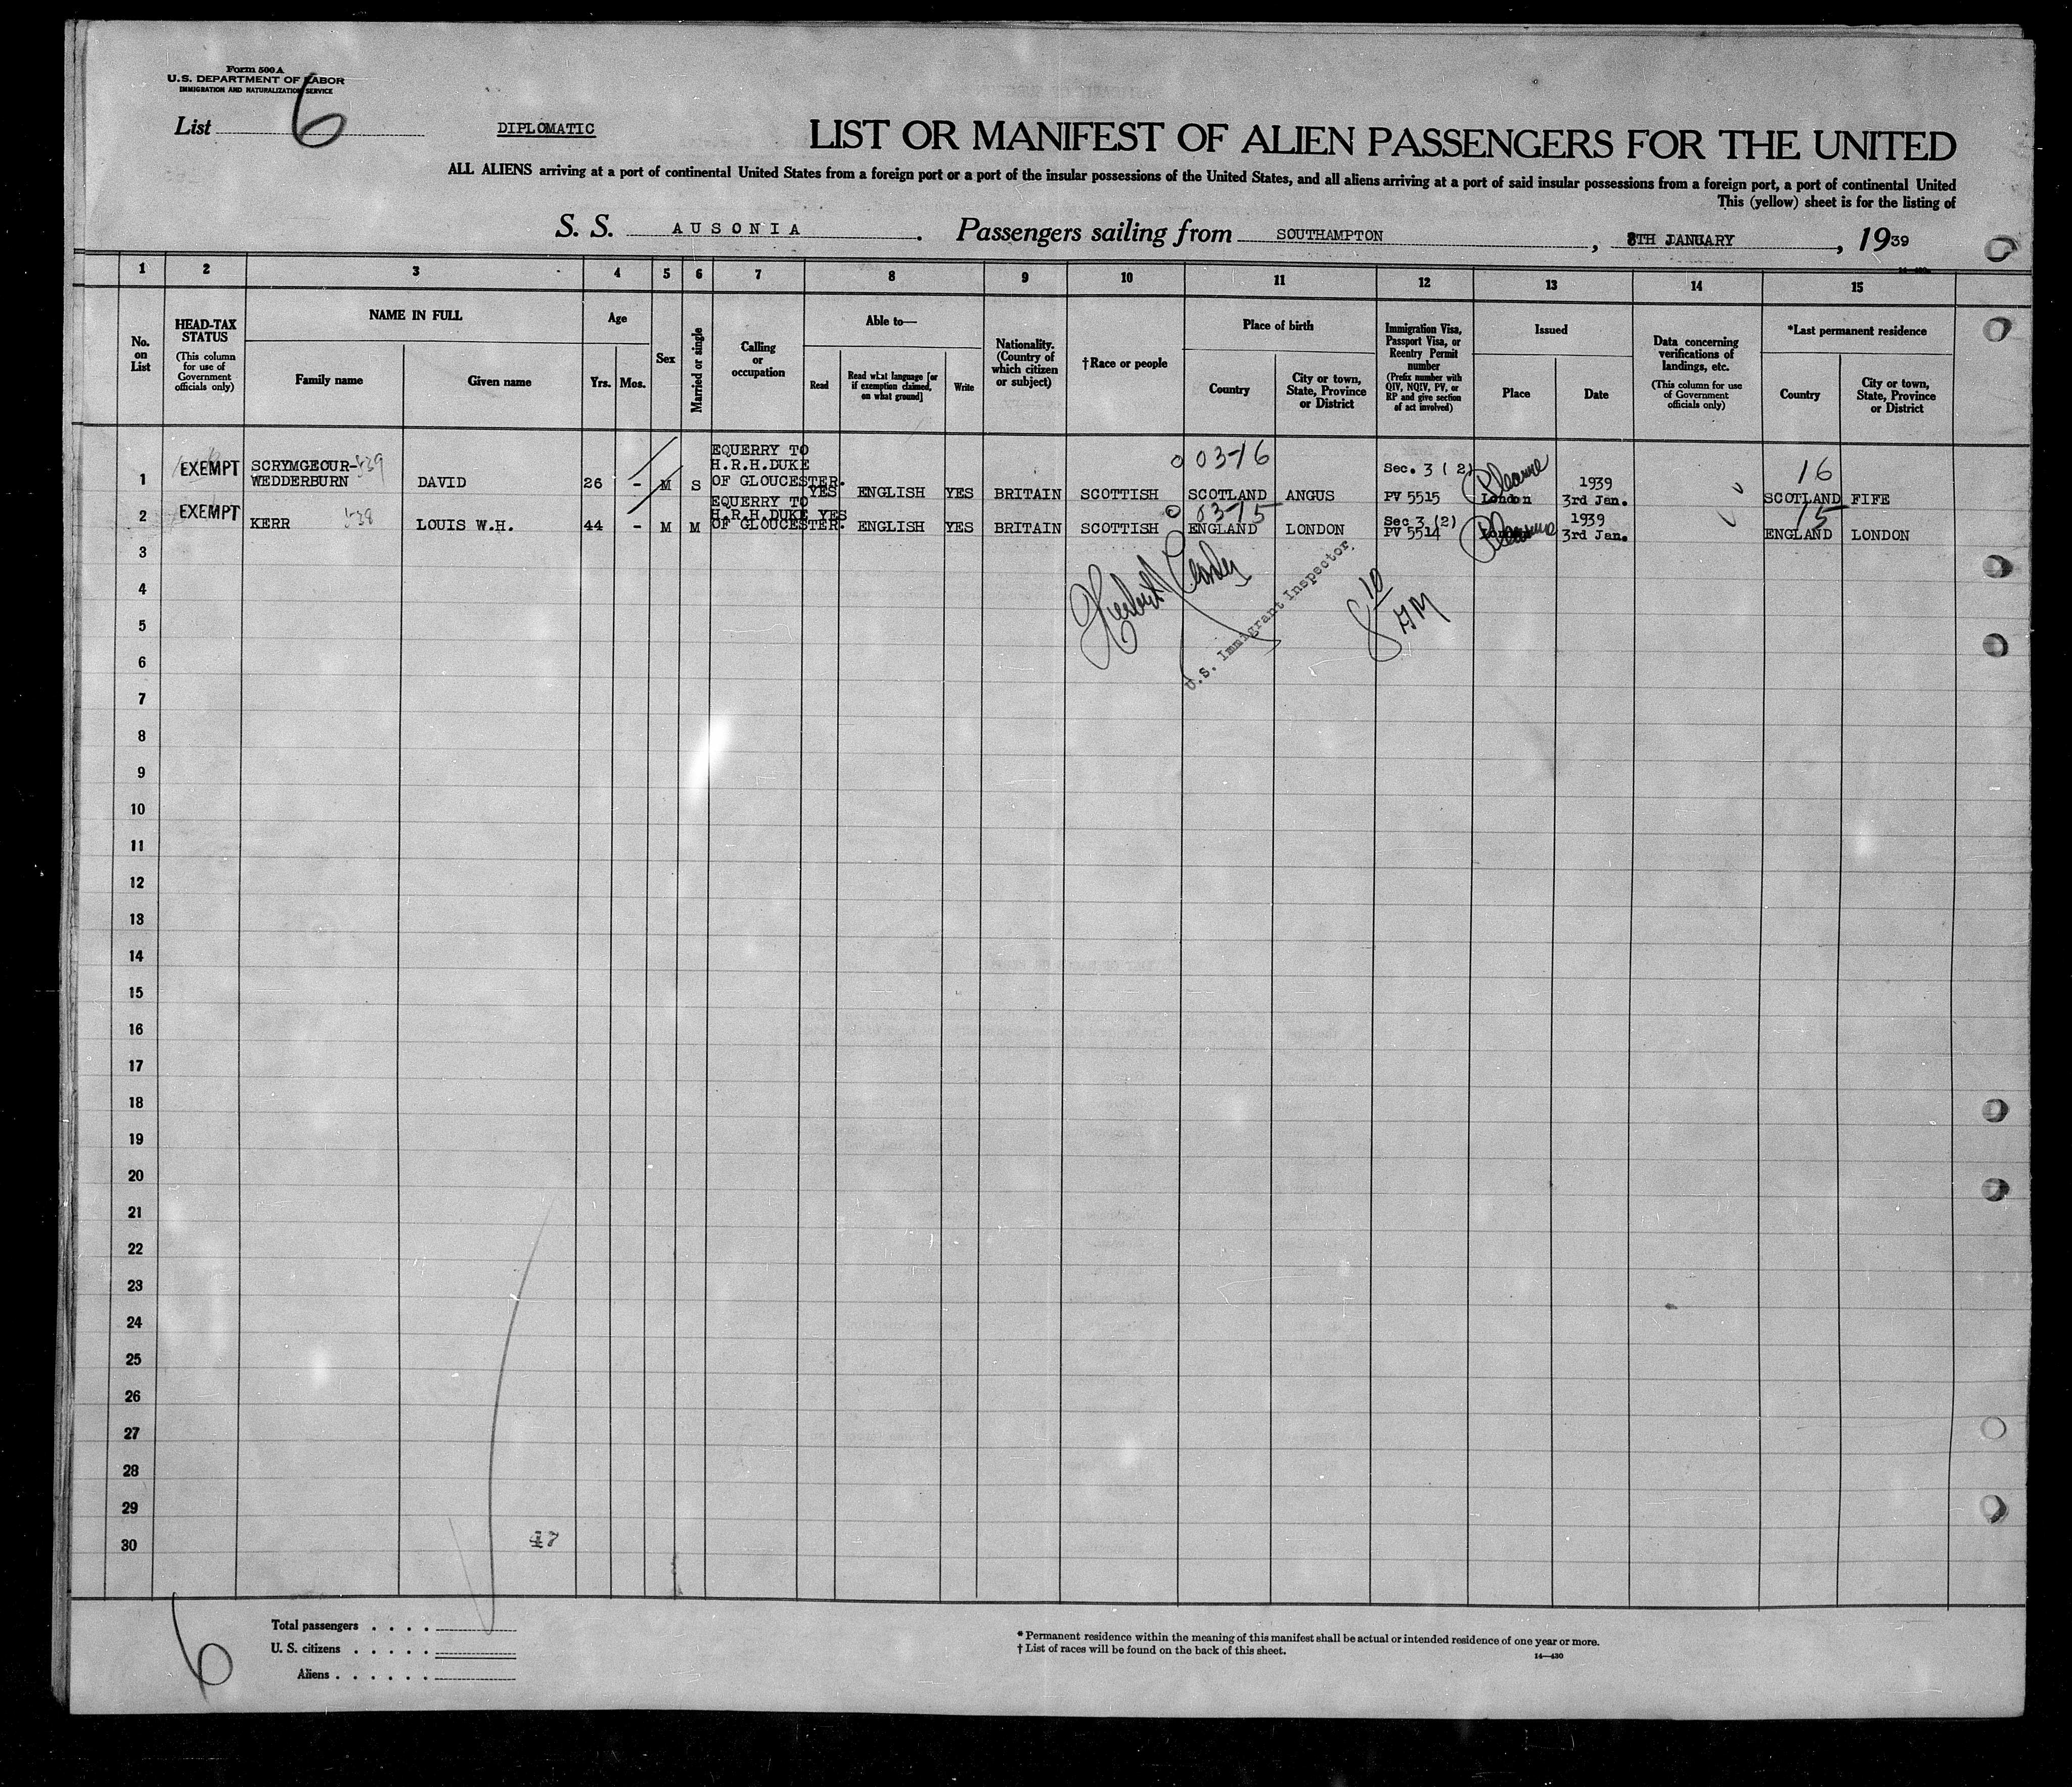 Form 500 A
U.S. DEPARTMENT OF LABOR
IMMIGRATION AND NATURALIZATION SERVICE
List 6
DIPLOMATIC
LIST OR MANIFEST OF ALIEN PASSENGERS FOR THE UNITED
ALL ALIENS arriving at a port of continental United States from a foreign port or a port of the insular possessions of the United States, and all aliens arriving at a port of said insular possessions from a foreign port, a port of continental United
This (yellow) sheet is for the listing of
S. S. AUSONIA. Passengers sailing from SOUTHAMPTON, 8TH JANUARY, 1939
1 2 3 4 5 6 7 8 9 10 11 12 13 14 15
No. on List
HEAD-TAX STATUS
(This column for use of Government officials only)
NAME IN FULL
Family name
Given name
Age
Yrs. Mos.
Sex
Married or single
Calling or occupation
Able to—
Read
Read what language [or if exemption claimed, on what ground]
Write
Nationality. (Country of which citizen or subject)
†Race or people
Place of birth
Country
City or town, State, Province or District
Immigration Visa, Passport Visa, or Reentry Permit number
(Prefix number with QIV, NQIV, PV, or RP and give section of act involved)
Issued
Place
Date
Data concerning verifications of landings, etc.
(This column for use of Government officials only)
*Last permanent residence
Country
City or town, State, Province or District
1 EXEMPT SCRYMGEOUR-WEDDERBURN DAVID 26 - M S EQUERRY TO H.R.H.DUKE OF GLOUCESTER. YES ENGLISH YES BRITAIN SCOTTISH 03-16 SCOTLAND ANGUS Sec. 3 (2) PV 5515 London 1939 3rd Jan. 16 SCOTLAND FIFE
2 EXEMPT KERR LOUIS W.H. 44 - M M EQUERRY TO H.R.H.DUKE OF GLOUCESTER. YES ENGLISH YES BRITAIN SCOTTISH 03-15 ENGLAND LONDON Sec 3 (2) PV 5514 London 1939 3rd Jan. 15 ENGLAND LONDON
3
4
5
6
7
8
9
10
11
12
13
14
15
16
17
18
19
20
21
22
23
24
25
26
27
28
29
30
U.S. Immigrant Inspector
8 10 AM
47
6
Total passengers
U. S. citizens
Aliens
* Permanent residence within the meaning of this manifest shall be actual or intended residence of one year or more.
† List of races will be found on the back of this sheet.
14—430